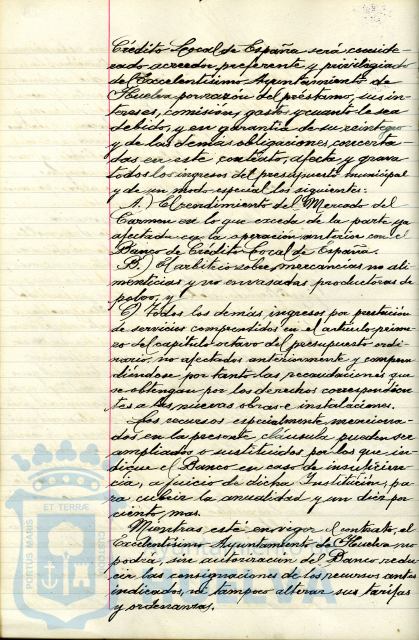 Crédito Local de España será conside-
rado acreedor preferente y privilegiado
del Excelentísimo Ayuntamiento de
Huelva por razón del préstamo, sus in-
tereses, comisión, gastos y cuanto le sea
debido, y en garantía de su reintegro
y de las demás obligaciones concerta-
das en este contrato, afecta y grava
todos los ingresos del presupuesto municipal
y de un modo especial los siguientes:
A.) El rendimiento del Mercado del
Carmen en lo que excede de la parte ya
afectada en la operación anterior con el
Banco de Crédito Local de España.
B.) El arbitrio sobre mercancías no ali-
menticias y no envasadas productoras de
polvo, y
C) Todos los demás ingresos por prestación
de servicios comprendidos en el artículo prime-
ro del capítulo octavo del presupuesto ordi-
nario, no afectados anteriormente y compren-
diéndose por tanto las recaudaciones que
se obtengan por los derechos correspondien-
tes a las nuevas obras e instalaciones.
Los recursos especialmente menciona-
dos en la presente cláusula pueden ser
ampliados o sustituidos por los que in-
dique el Banco en caso de insuficien-
cia, a juicio de dicha Institución, pa-
ra cubrir la anualidad y un diez por
ciento mas.
Mientras esté en vigor el contrato, el
Excelentísimo Ayuntamiento de Huelva no
podrá, sin autorización del Banco, redu-
cir las consignaciones de los recursos antes
indicados, ni tampoco alterar sus tarifas
y ordenanzas.
PORTUS MARIS
ET TERRÆ
CUSTODIA
Ayuntamiento de
HUELVA